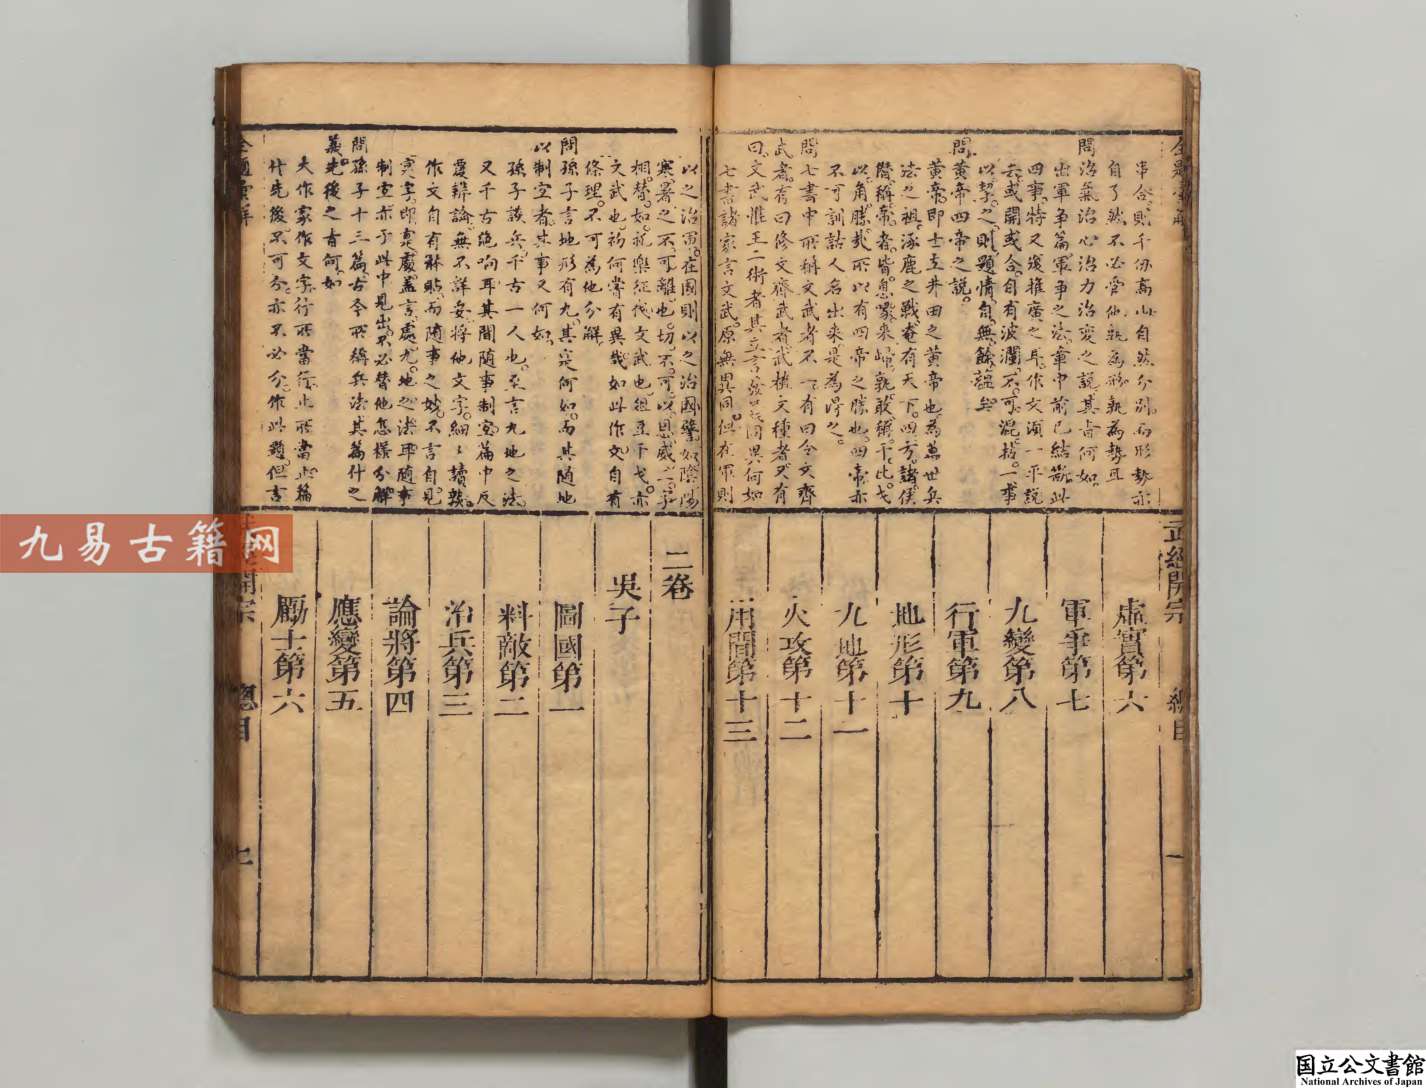 串合則千仞高山自然分別而形勢亦
自了然不必管他孰為形孰為勢耳
問治氣治心治力治變之說其旨何如
出軍爭篇軍爭之法篇中前已結斷此
四事特又復推廣之耳作文須一平說
去或開或合自有波瀾不可混揞一事
以挈之則題情自無餘蘊矣
問黃帝四帝之說
黃帝即士立井田之黃帝也為萬世兵
法之祖涿鹿之戰奄有天下四方諸侯
僭稱帝者皆息喙來歸孰敢稱干比戈
以角勝哉所以有四帝之勝也四帝亦
不可訓詁人名出來是為得之
問七書中所稱文武者不一有曰令文齊
武者有曰修文齊武者武橫文種者又有
曰文武惟王二術者其立言發口同異何如
七書諸家言文武原無異同但在軍則
虛實第六
軍爭第七
九變第八
行軍第九
地形第十
九地第十一
火攻第十二
用間第十三
武經開宗
總目
以之治軍在國則以之治國譬如陰陽
寒暑之不可離也切不可以恩威二字
相替如祝樂征伐文武也俎豆干戈亦
文武也祠何嘗有異哉如此作文自有
條理不可為他分解
問孫子言地形有九其寔何如而其隨地
以制宜者其事又何如
孫子談兵千古一人也至言九地之法
又千古絕响耳其間隨事制宜篇中反
覆辨論無不詳妥將他文字細細讀熟
作文自有解貼而隨事之妙不言自見
寔字即寔處蓋言處九地之法耶隨事
制宜亦于此中見出不必替他怎樣分解
問孫子十三篇古今所稱兵法其篇什之
義先後之旨何如
大作家作文字行所當行止所當止篇
什先後不可分亦不必分作此題但言
二卷
吳子
圖國第一
料敵第二
治兵第三
論將第四
應變第五
勵士第六
開宗
總目
七
九易古籍网
国立公文書館
National Archives of Japan